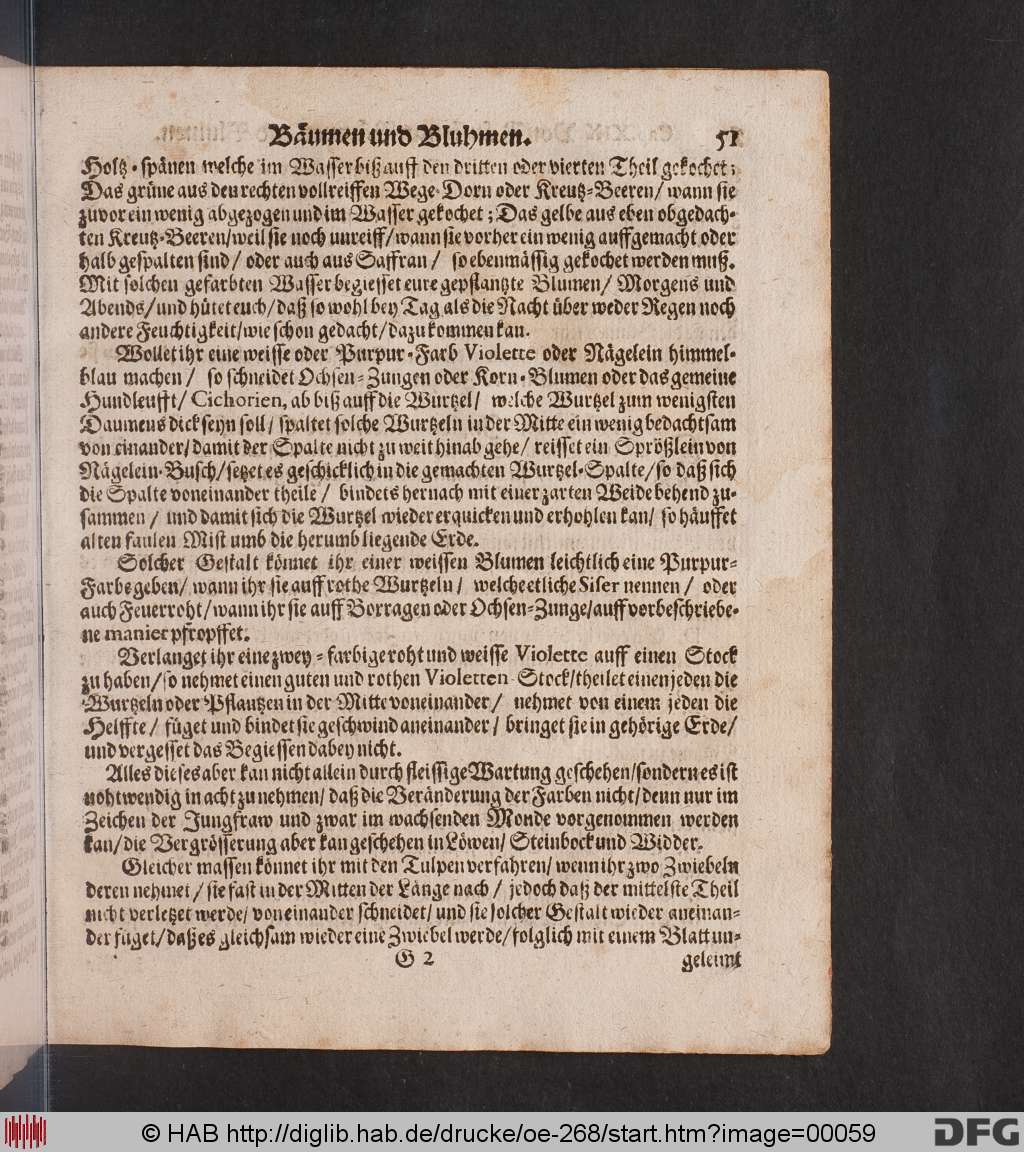 Bäumen und Bluhmen. 51
Holtz-spänen welche im Wasser biß auff den dritten oder vierten Theil gekochet;
Das grüne aus den rechten vollreiffen Wege-Dorn oder Kreutz-Beeren/ wann sie
zuvor ein wenig abgezogen und im Wasser gekochet; Das gelbe aus eben obgedach-
ten Kreutz-Beeren/ weil sie noch unreiff/ wann sie vorher ein wenig auffgemacht oder
halb gespalten sind/ oder auch aus Saffran/ so ebenmässig gekochet werden muß.
Mit solchen gefarbten Wasser begiesset eure gepflantzte Blumen/ Morgens und
Abends/ und hütet euch/ daß so wohl bey Tag als die Nacht über weder Regen noch
andere Feuchtigkeit/ wie schon gedacht/ dazu kommen kan.
Wollet ihr eine weisse oder Purpur-Farb Violette oder Nägelein himmel-
blau machen/ so schneidet Ochsen-Zungen oder Korn-Blumen oder das gemeine
Hundleufft/ Cichorien, ab biß auff die Wurtzel/ welche Wurtzel zum wenigsten
Daumens dick seyn soll/ spaltet solche Wurtzeln in der Mitte ein wenig bedachtsam
von einander/ damit der Spalte nicht zu weit hinab gehe/ reisset ein Sprößlein von
Nägelein-Busch/ setzet es geschicklich in die gemachten Wurtzel-Spalte/ so daß sich
die Spalte voneinander theile/ bindets hernach mit einer zarten Weide behend zu-
sammen/ und damit sich die Wurtzel wieder erquicken und erhohlen kan/ so häuffet
alten faulen Mist umb die herumb liegende Erde.
Solcher Gestalt könnet ihr einer weissen Blumen leichtlich eine Purpur-
Farbe geben/ wann ihr sie auff rothe Wurtzeln/ welche etliche Siser nennen/ oder
auch Feuerroht/ wann ihr sie auff Borragen oder Ochsen-Zunge/ auff vorbeschriebe-
ne manier pfropffet.
Verlanget ihr eine zwey-farbige roht und weisse Violette auff einen Stock
zu haben/ so nehmet einen guten und rothen Violetten-Stock/ theilet einen jeden die
Wurtzeln oder Pflantzen in der Mitte voneinander/ nehmet von einem jeden die
Helffte/ füget und bindet sie geschwind aneinander/ bringet sie in gehörige Erde/
und vergesset das Begiessen dabey nicht.
Alles dieses aber kan nicht allein durch fleissige Wartung geschehen/ sondern es ist
nohtwendig in acht zu nehmen/ daß die Veränderung der Farben nicht/ denn nur im
Zeichen der Jungfraw und zwar im wachsenden Monde vorgenommen werden
kan/ die Vergrösserung aber kan geschehen in Löwen/ Steinbock und Widder.
Gleicher massen könnet ihr mit den Tulpen verfahren/ wenn ihr zwo Zwiebeln
deren nehmet/ sie fast in der Mitten der Länge nach/ jedoch daß der mittelste Theil
nicht verletzet werde/ voneinander schneidet/ und sie solcher Gestalt wieder aneinan-
der füget/ daß es gleichsam wieder eine Zwiebel werde/ folglich mit einem Blatt un-
G 2 geleimt
© HAB http://diglib.hab.de/drucke/oe-268/start.htm?image=00059
DFG